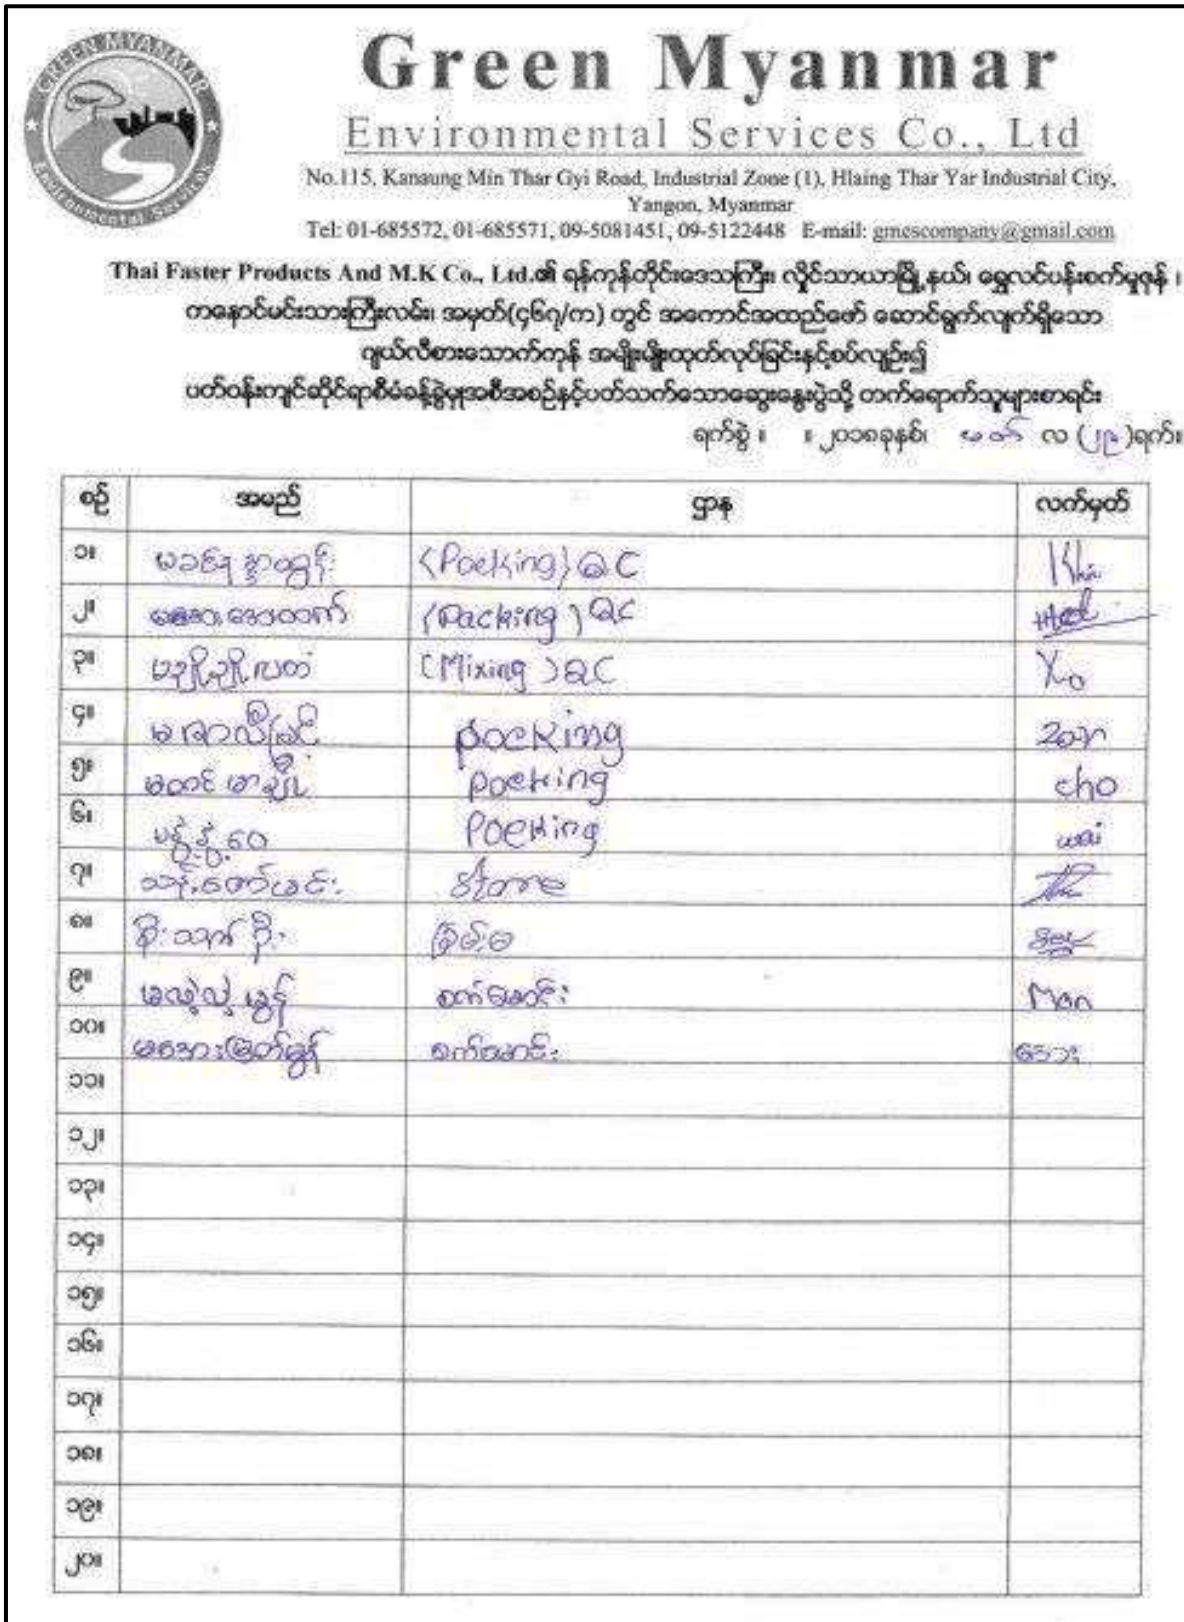 GREEN MYANMAR
Environmental Services
Green Myanmar
Environmental Services Co., Ltd
No.115, Kanaung Min Thar Gyi Road, Industrial Zone (1), Hlaing Thar Yar Industrial City,
Yangon, Myanmar
Tel: 01-685572, 01-685571, 09-5081451, 09-5122448 E-mail: gmescompany@gmail.com
Thai Faster Products And M.K Co., Ltd.၏ ရန်ကုန်တိုင်းဒေသကြီး၊ လှိုင်သာယာမြို့နယ်၊ ရွှေလင်ပန်းစက်မှုဇုန် ၊
ကနောင်မင်းသားကြီးလမ်း၊ အမှတ်(၄၆၇/က) တွင် အကောင်အထည်ဖော် ဆောင်ရွက်လျက်ရှိသော
ဂျယ်လီစားသောက်ကုန် အမျိုးမျိုးထုတ်လုပ်ခြင်းနှင့်စပ်လျဉ်း၍
ပတ်ဝန်းကျင်ဆိုင်ရာစီမံခန့်ခွဲမှုအစီအစဉ်နှင့်ပတ်သက်သောဆွေးနွေးပွဲသို့ တက်ရောက်သူများစာရင်း
ရက်စွဲ ။ ။၂၀၁၈ခုနှစ်၊ မတ် လ (၂၉)ရက်။
စဉ် အမည် ဌာန လက်မှတ်
၁။ (Packing) QC
၂။ (Packing) QC
၃။ (Mixing) QC
၄။ packing
၅။ packing cho
၆။ Packing wai
၇။ Store
၈။ စိုးသက်ဦး
၉။ မလဲ့လဲ့မွန် စက်မောင်း Mon
၁၀။ မအေးမြတ်မွန် စက်မောင်း အေး
၁၁။
၁၂။
၁၃။
၁၄။
၁၅။
၁၆။
၁၇။
၁၈။
၁၉။
၂၀။